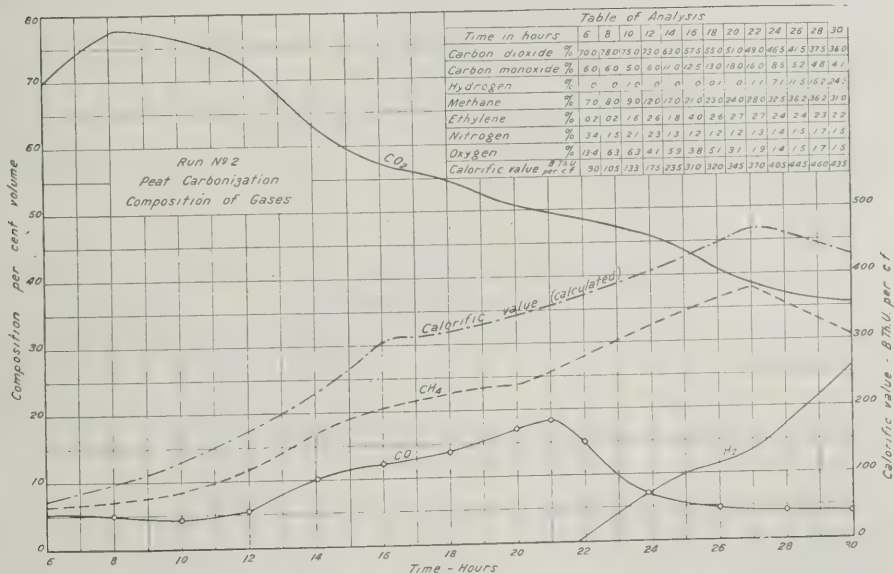 Table of Analysis
Time in hours 6 8 10 12 14 16 18 20 22 24 26 28 30
Carbon dioxide % 70.0 78.0 75.0 73.0 63.0 57.5 55.0 51.0 49.0 46.5 41.5 37.5 36.0
Carbon monoxide % 6.0 6.0 5.0 6.0 11.0 12.5 13.0 18.0 16.0 8.5 5.2 4.8 4.1
Hydrogen % 0 0 1.0 0 0 0 0.1 0 1.1 7.1 11.5 16.2 24.5
Methane % 7.0 8.0 9.0 12.0 17.0 21.0 23.0 24.0 28.0 32.5 36.2 36.2 31.0
Ethylene % 0.2 0.2 1.6 2.6 1.8 4.0 2.6 2.7 2.7 2.4 2.4 2.3 2.2
Nitrogen % 3.4 1.5 2.1 2.3 1.3 1.2 1.2 1.2 1.3 1.4 1.5 1.7 1.5
Oxygen % 13.4 6.3 6.3 4.1 5.9 3.8 5.1 3.1 1.9 1.4 1.5 1.7 1.5
Calorific value B.Th.U. per c f 90 105 133 175 235 310 320 345 370 405 445 460 435
Run Nº 2
Peat Carbonization
Composition of Gases
CO2
Calorific value (calculated)
CH4
CO
H2
Composition per cent volume
80
70
60
50
40
30
20
10
0
Calorific value - B.Th.U. per c f
500
400
300
200
100
0
6 8 10 12 14 16 18 20 22 24 26 28 30
Time - Hours